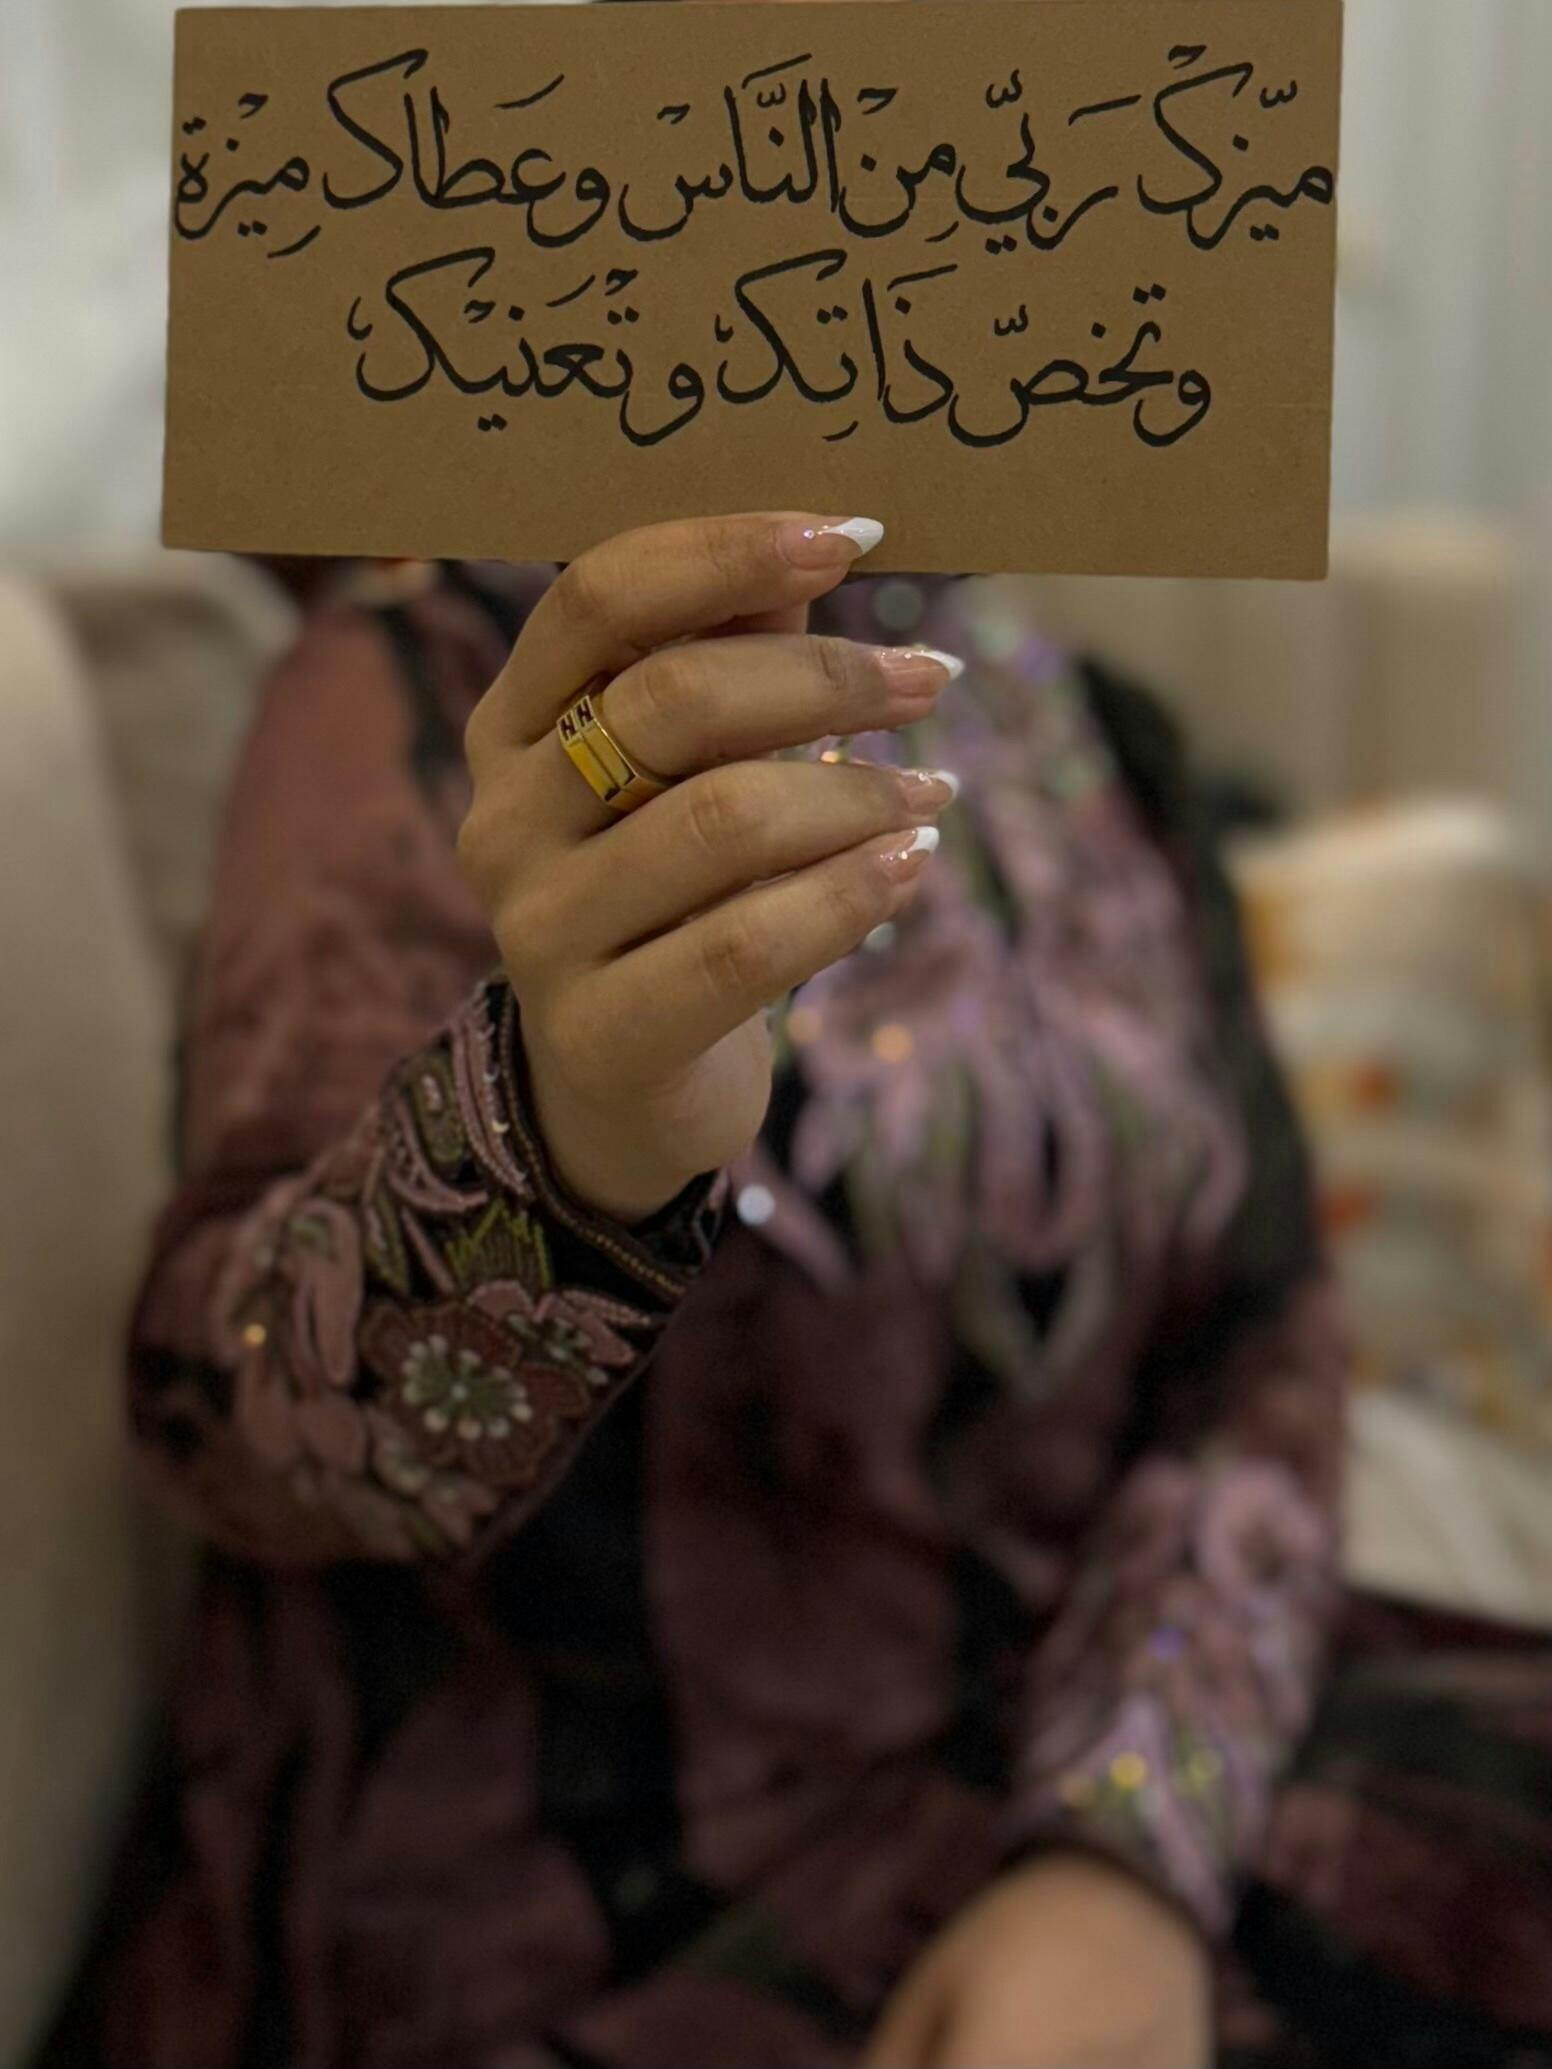 ميّزكْ رَبّي مِنْ النَّاسْ وعَطاكـ مِيْزة
وتْخصّ ذَاتِكْ وتْعَنيْكْ
HH